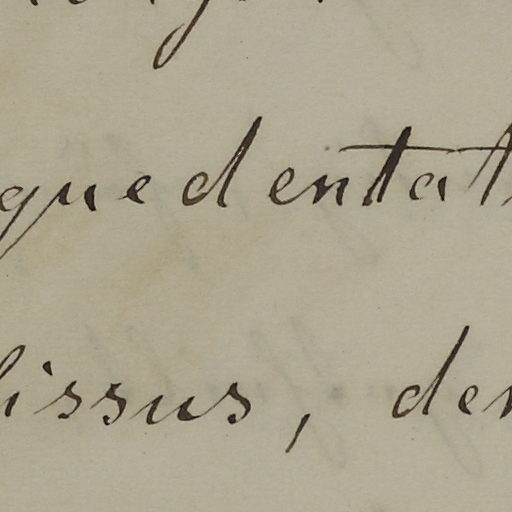 quedentat
lissus, den